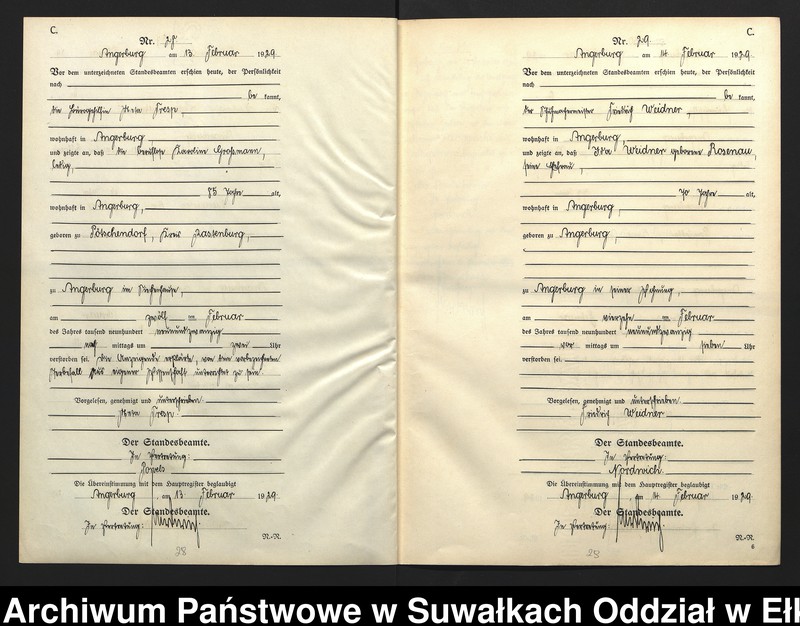 C.
Nr. 28
Angerburg am 13. Februar 1929
Vor dem unterzeichneten Standesbeamten erschien heute, der Persönlichkeit
nach
be kannt,
die Meta Fresp,
wohnhaft in Angerburg
und zeigte an, daß die berufslose Karoline Großmann,
ledig,
85 Jahre alt,
wohnhaft in Angerburg,
geboren zu Pötschendorf, Kreis Rastenburg,
zu Angerburg im Siechenhause,
am zwölf ten Februar
des Jahres tausend neunhundert neunundzwanzig
nach mittags um zwei Uhr
verstorben sei. Die Anzeigende erklärte, von dem vorbezeichneten
Sterbefall aus eigener Wissenschaft unterrichtet zu sein.
Vorgelesen, genehmigt und unterschrieben.
Meta Fresp.
Der Standesbeamte.
In Vertretung:
Die Übereinstimmung mit dem Hauptregister beglaubigt
Angerburg, am 13. Februar 1929.
Der Standesbeamte.
In Vertretung:
28
C.
Nr. 29
Angerburg am 14. Februar 1929.
Vor dem unterzeichneten Standesbeamten erschien heute, der Persönlichkeit
nach
be kannt,
der Schuhmachermeister Friedrich Weidner,
wohnhaft in Angerburg,
und zeigte an, daß Ida Weidner geborene Rosenau,
seine Ehefrau,
70 Jahre alt,
wohnhaft in Angerburg,
geboren zu Angerburg,
zu Angerburg in seiner Wohnung,
am vierzehn ten Februar
des Jahres tausend neunhundert neunundzwanzig
vor mittags um sieben Uhr
verstorben sei.
Vorgelesen, genehmigt und unterschrieben.
Friedrich Weidner
Der Standesbeamte.
In Vertretung:
Nordwich.
Die Übereinstimmung mit dem Hauptregister beglaubigt
Angerburg, am 14. Februar 1929.
Der Standesbeamte.
In Vertretung:
6
Archiwum Państwowe w Suwałkach Oddział w Ełk